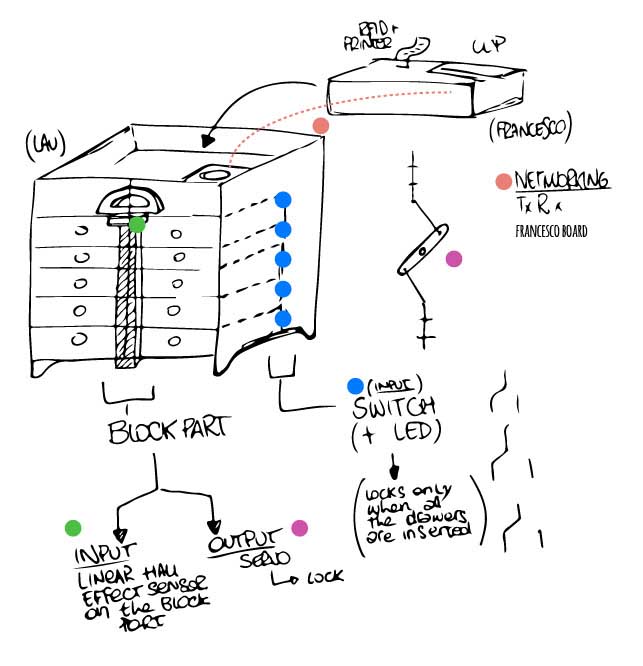 RFID +
PRINTER
UP
(LAU)
(FRANCESCO)
NETWORKING
Tx Rx
FRANCESCO BOARD
(INPUT)
SWITCH
(+ LED)
BLOCK PART
(LOCKS ONLY
when all
the drawers
are inserted)
INPUT
LINEAR HALL
EFFECT SENSOR
on the BLOCK
PART
OUTPUT
SERVO
LOCK